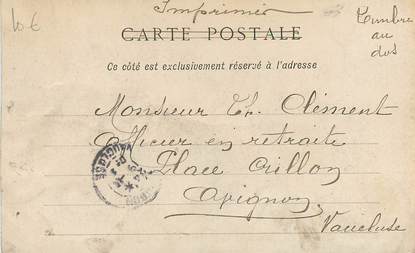 10 €
Imprimés
Timbre
au
dos
CARTE POSTALE
Ce côté est exclusivement réservé à l'adresse
Monsieur Th. Clément
Officier en retraite
Place Crillon
Avignon
Vaucluse
VAUCLUSE